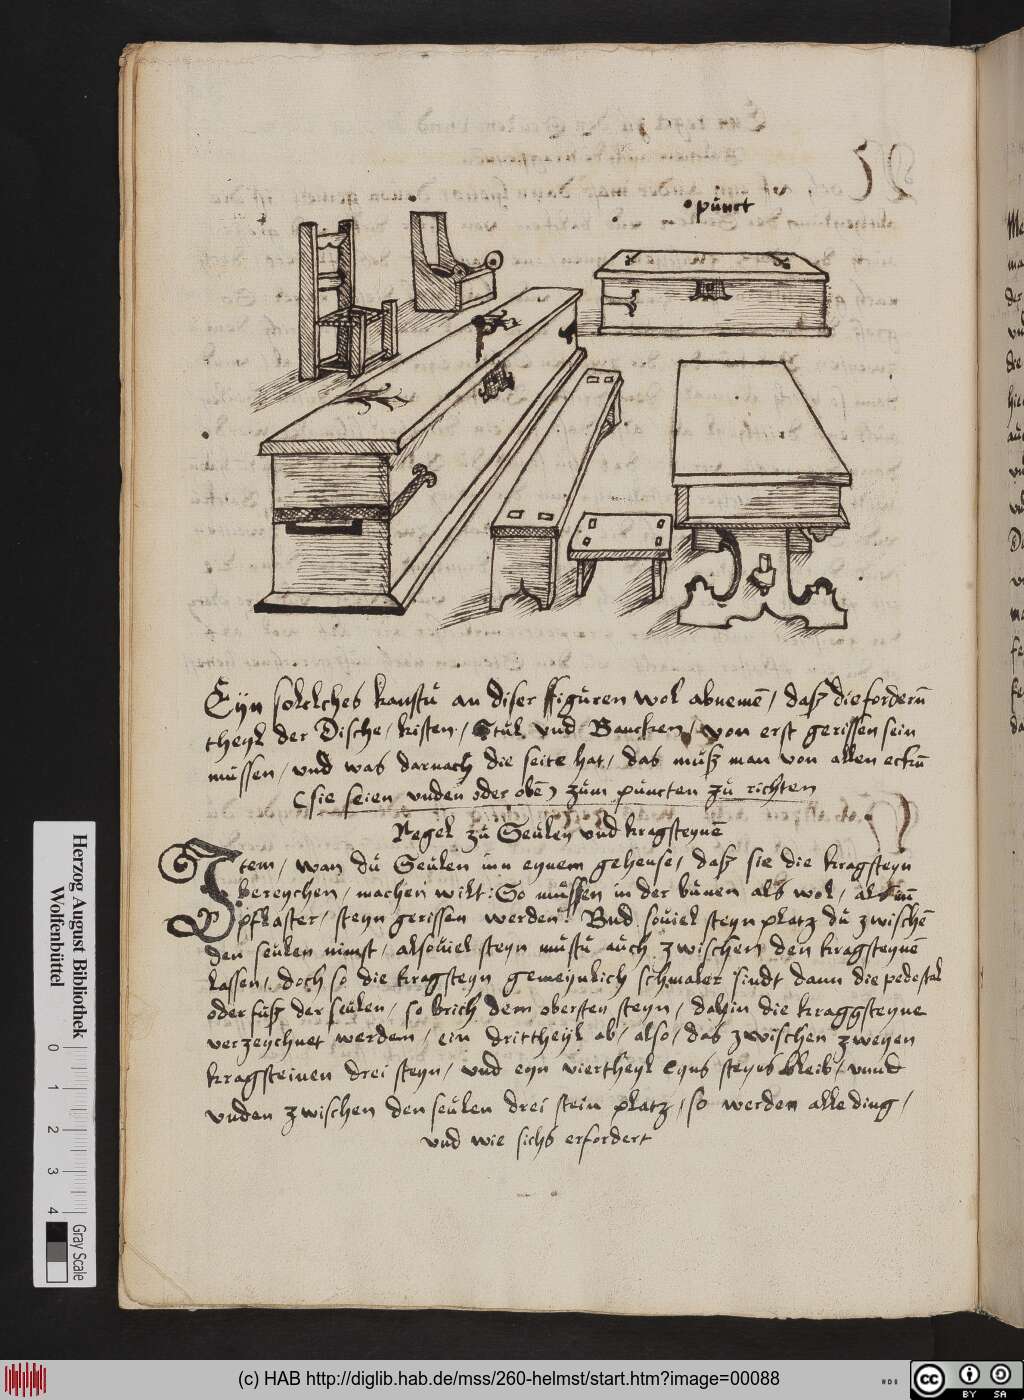 punct
Eyn solchs kanstu an diser ffiguren wol abnemē / daß die fordern̄
theyl der Dische / kisten / Stul vnd Bancken / von erst gerissen sein
müssen / vnd was darnach die seite hat / das můß man von allen eckn̄
(sie seien vnden oder obē) zům puncten zů richten
Regel zů Seůlen vnd kragsteynē
Item / wan dů Seůlen inn eynem geheuse / daß sie die kragsteyn
bereychen / machen wilt: So můssen in der bůnen als wol / als im̄
pflaster / steyn gerissen werden: Vnd soůiel steyn platz dů zwischē
den seulen nimst / alsoůiel steyn můstů aůch zwischen den kragsteynē
lassen / doch so die kragsteyn gemeynlich schmaler sindt dann die pedestal
oder fůß der seulen / so brich dem obersten steyn / dahin die kraggsteyne
verzeychnet werden / ein drittheyl ab / also / das zwischen zweyen
kragsteinen drei steyn / vnd eyn viertheyl eyns steyns bleib / vnnd
vnden zwischen den seulen drei stein platz / so werden alle ding /
vnd wie sichs erfordert
Herzog August Bibliothek
Wolfenbüttel
0 1 2 3 4
Gray Scale
(c) HAB http://diglib.hab.de/mss/260-helmst/start.htm?image=00088
cc BY SA